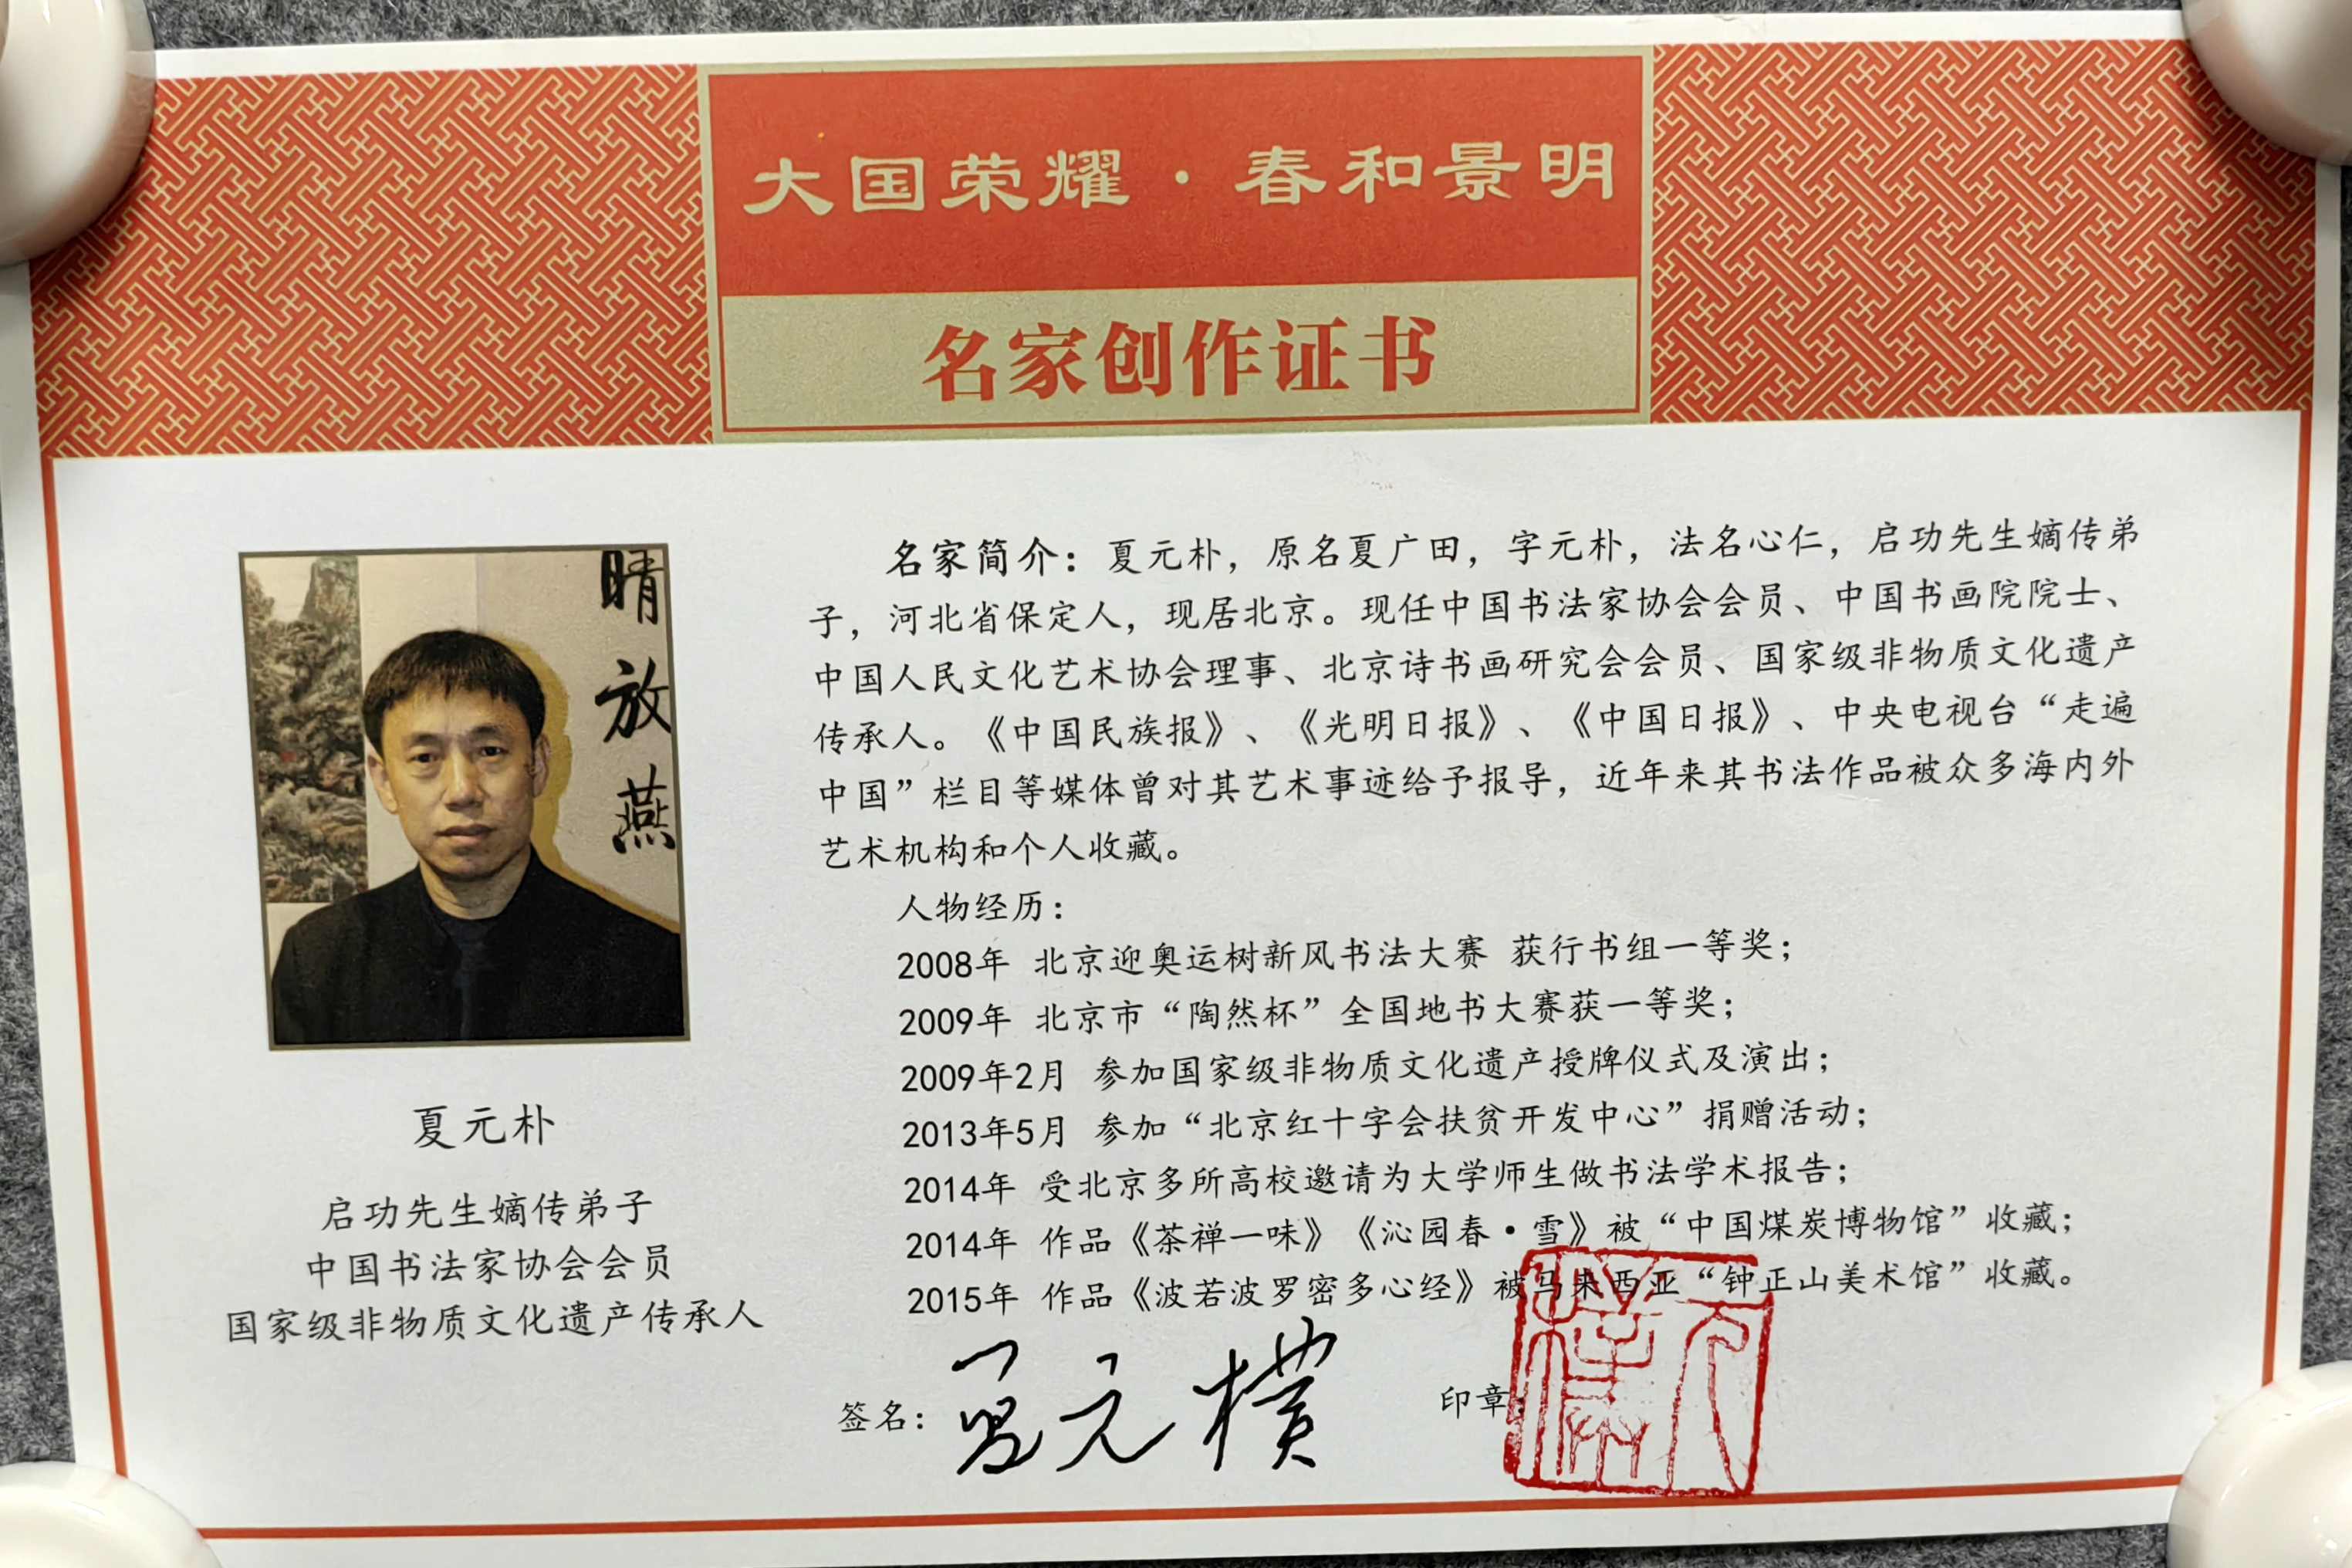 大国荣耀·春和景明
名家创作证书
晴
放
燕
夏元朴
启功先生嫡传弟子
中国书法家协会会员
国家级非物质文化遗产传承人
名家简介：夏元朴，原名夏广田，字元朴，法名心仁，启功先生嫡传弟
子，河北省保定人，现居北京。现任中国书法家协会会员、中国书画院院士、
中国人民文化艺术协会理事、北京诗书画研究会会员、国家级非物质文化遗产
传承人。《中国民族报》、《光明日报》、《中国日报》、中央电视台“走遍
中国”栏目等媒体曾对其艺术事迹给予报导，近年来其书法作品被众多海内外
艺术机构和个人收藏。
人物经历：
2008年 北京迎奥运树新风书法大赛 获行书组一等奖；
2009年 北京市“陶然杯”全国地书大赛获一等奖；
2009年2月 参加国家级非物质文化遗产授牌仪式及演出；
2013年5月 参加“北京红十字会扶贫开发中心”捐赠活动；
2014年 受北京多所高校邀请为大学师生做书法学术报告；
2014年 作品《茶禅一味》《沁园春·雪》被“中国煤炭博物馆”收藏；
2015年 作品《波若波罗密多心经》被马来西亚“钟正山美术馆”收藏。
签名：夏元樸
印章：